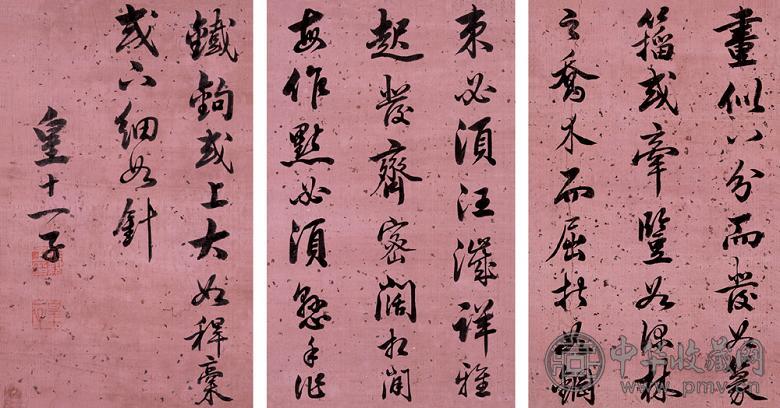 畫似八分而發如篆
籀或牽豎如深林
之喬木而屈折如鋼
末必須汪濊詳雅
起發齊密闊相間
每作點必須懸手作
鐵鉤或上大如稈稾
或下細如針
皇十一子
中华收藏网
www.pmv.cn